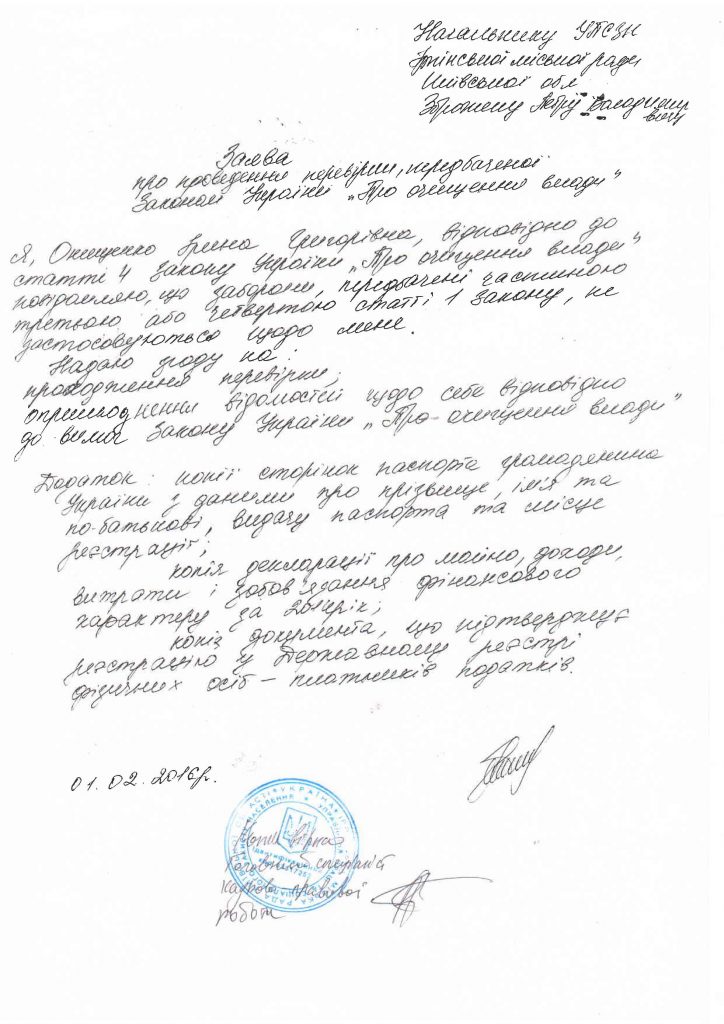 Начальнику УПСЗН
Ірпінської міської ради
Київської обл
Петру Володимир
вичу
Заява
про проведення перевірки, передбаченої
Законом України „Про очищення влади"
Я, Онищенко Ірина Григорівна, відповідно до
статті 4 Закону України „Про очищення влади"
повідомляю, що заборони, передбачені частиною
третьою або четвертою статті 1 Закону, не
застосовуються щодо мене.
Надаю згоду на:
проходження перевірки;
оприлюднення відомостей щодо себе відповідно
до вимог Закону України „Про очищення влади"
Додаток: копії сторінок паспорта громадянина
України з даними про прізвище, ім'я та
по-батькові, видачу паспорта та місце
реєстрації;
копія декларації про майно, доходи,
витрати і зобов'язання фінансового
характеру за 2014рік;
копія документа, що підтверджує
реєстрацію у Державному реєстрі
фізичних осіб – платників податків.
01.02.2016р.
Копія вірна
Головний спеціаліст
кадрово правової
роботи